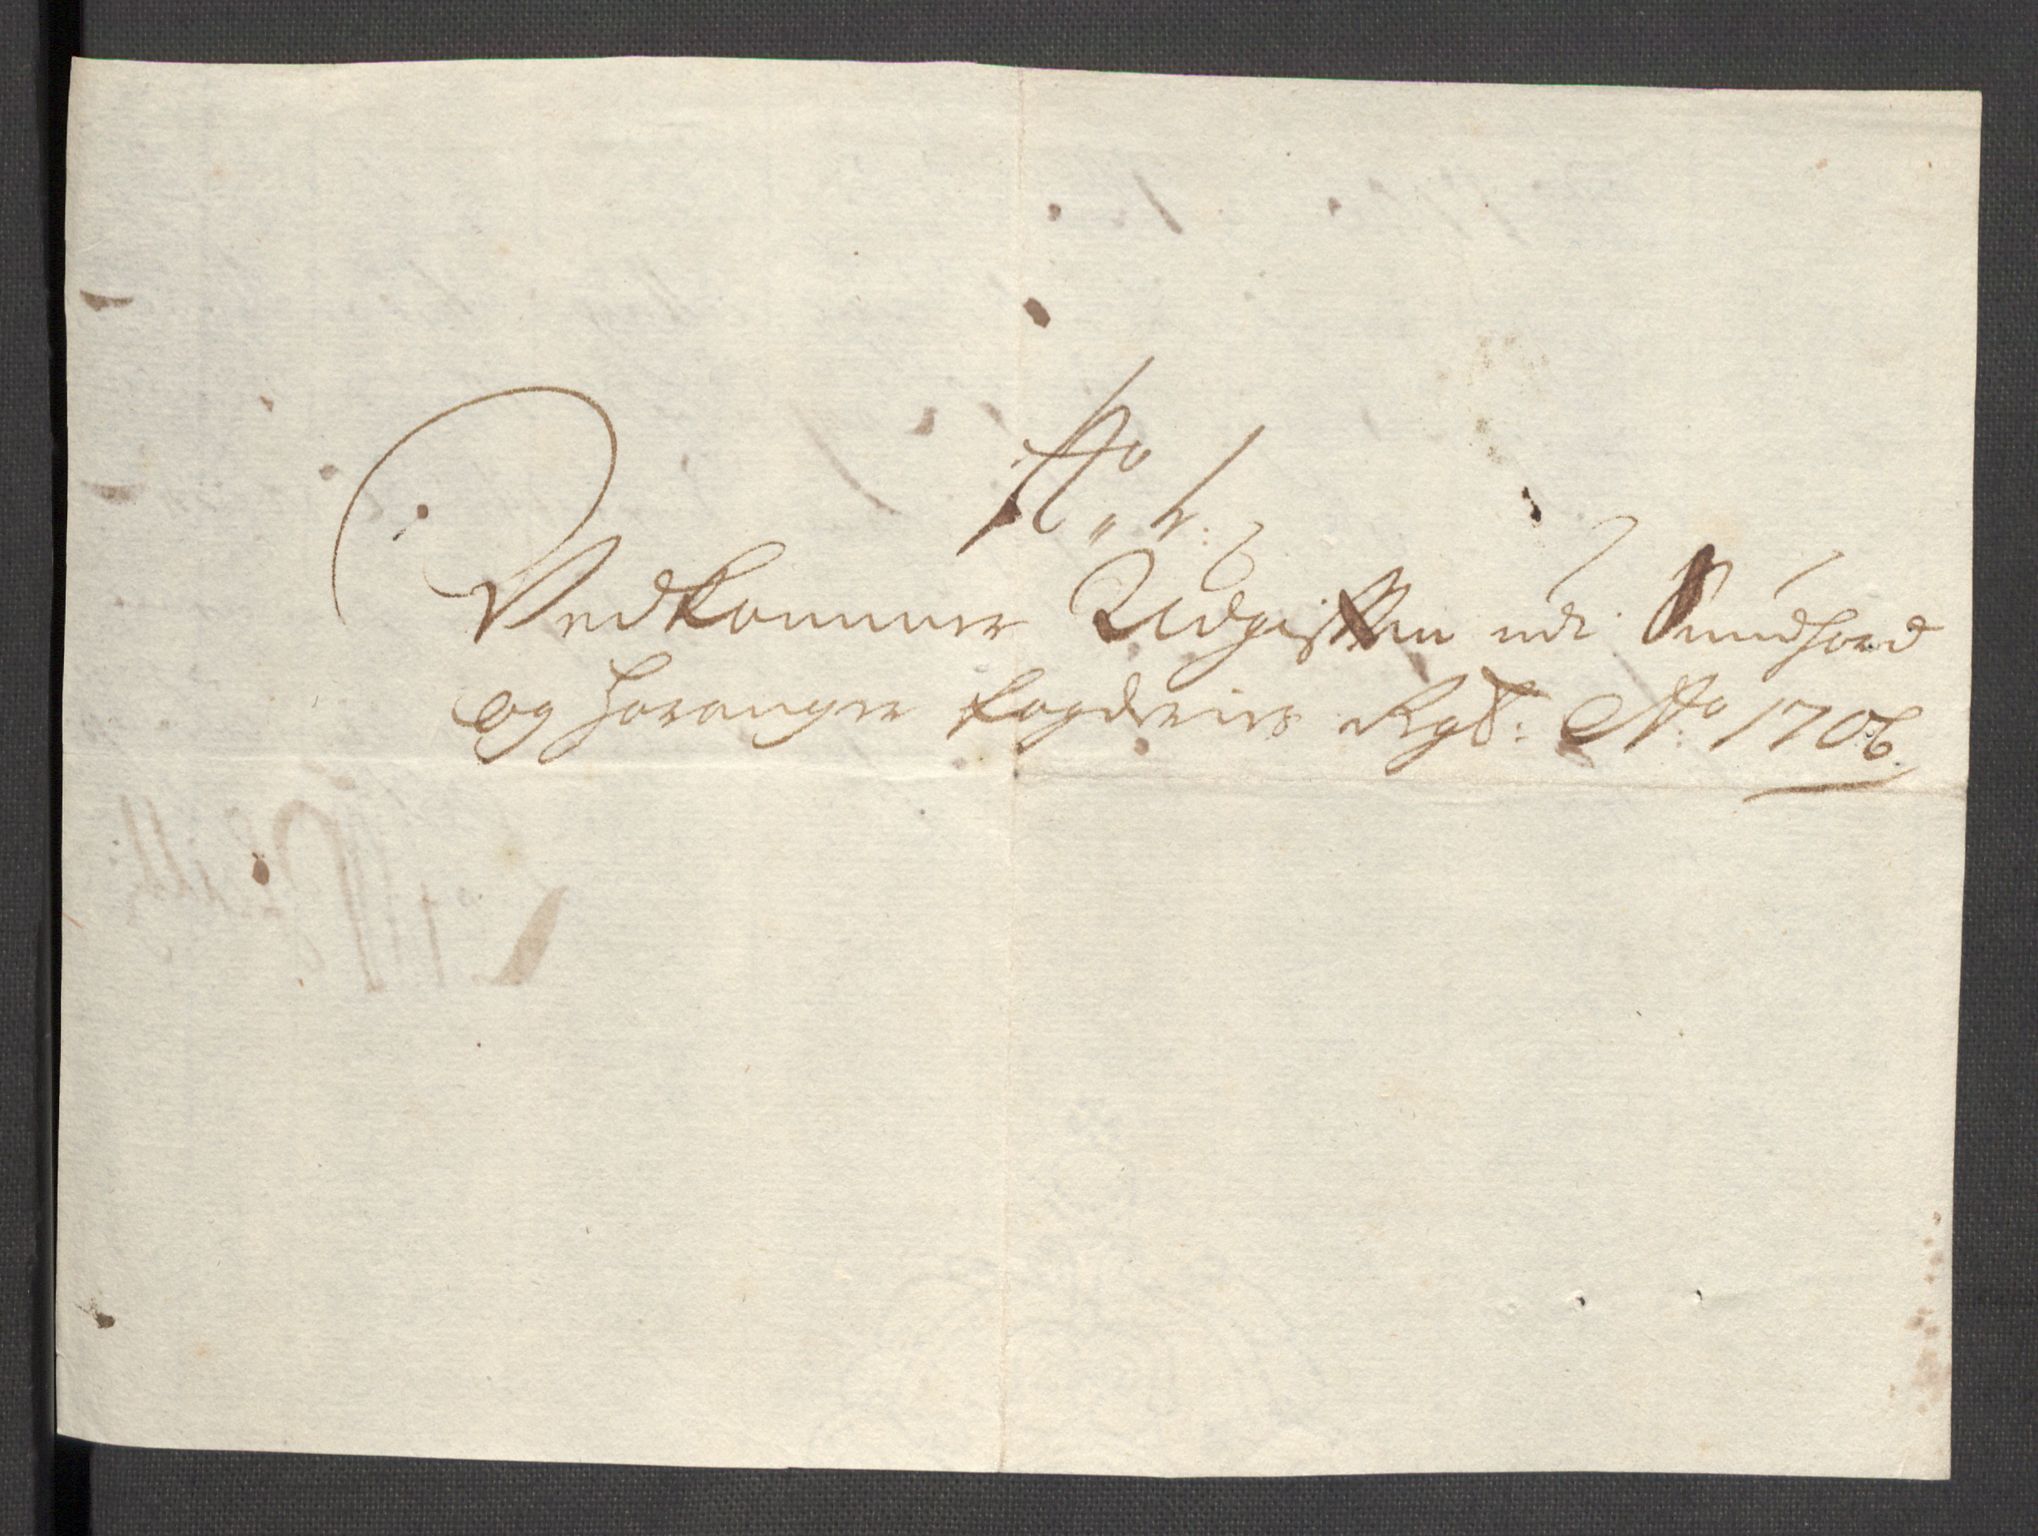 No
Vedkommer Udgiften udi Sundhord
og Haranger fogderies Rgb: Ao 1706.